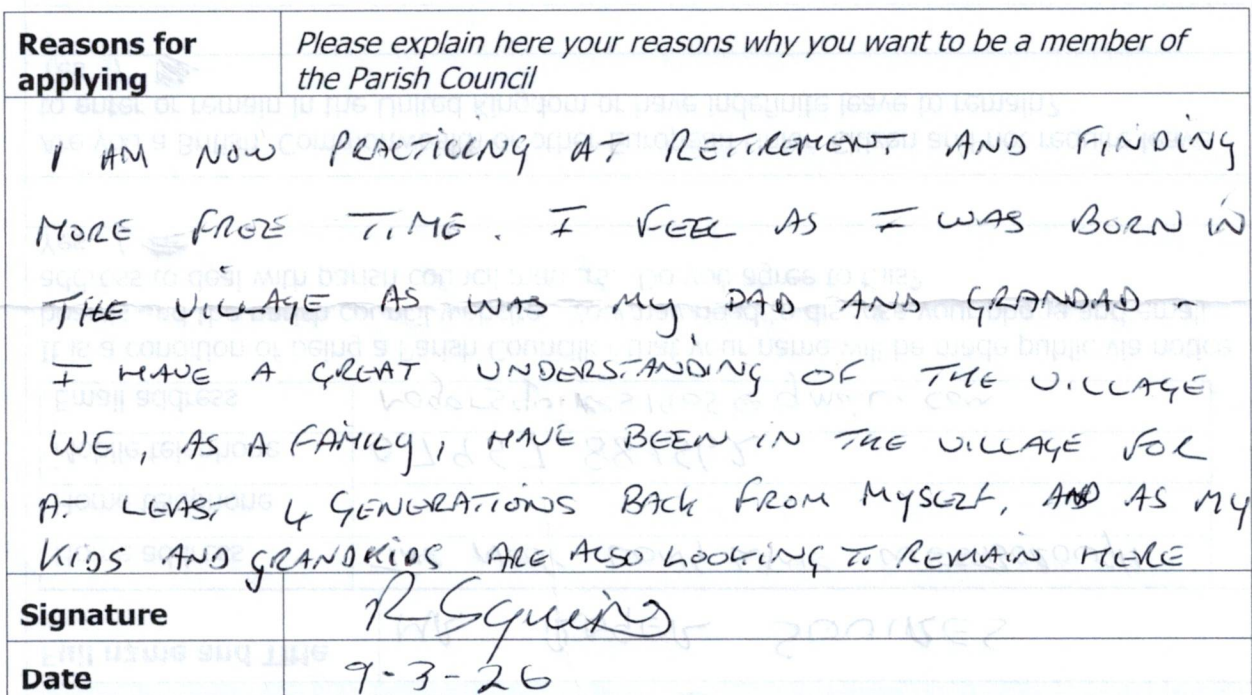 Reasons for applying
Please explain here your reasons why you want to be a member of
the Parish Council
I AM NOW PRACTICING AT RETIREMENT AND FINDING
MORE FREE TIME. I FEEL AS I WAS BORN IN
THE VILLAGE AS WAS MY DAD AND GRANDAD -
I HAVE A GREAT UNDERSTANDING OF THE VILLAGE
WE, AS A FAMILY, HAVE BEEN IN THE VILLAGE FOR
AT LEAST 4 GENERATIONS BACK FROM MYSELF, AND AS MY
KIDS AND GRANDKIDS ARE ALSO LOOKING TO REMAIN HERE
Signature R Squires
Date 9-3-26